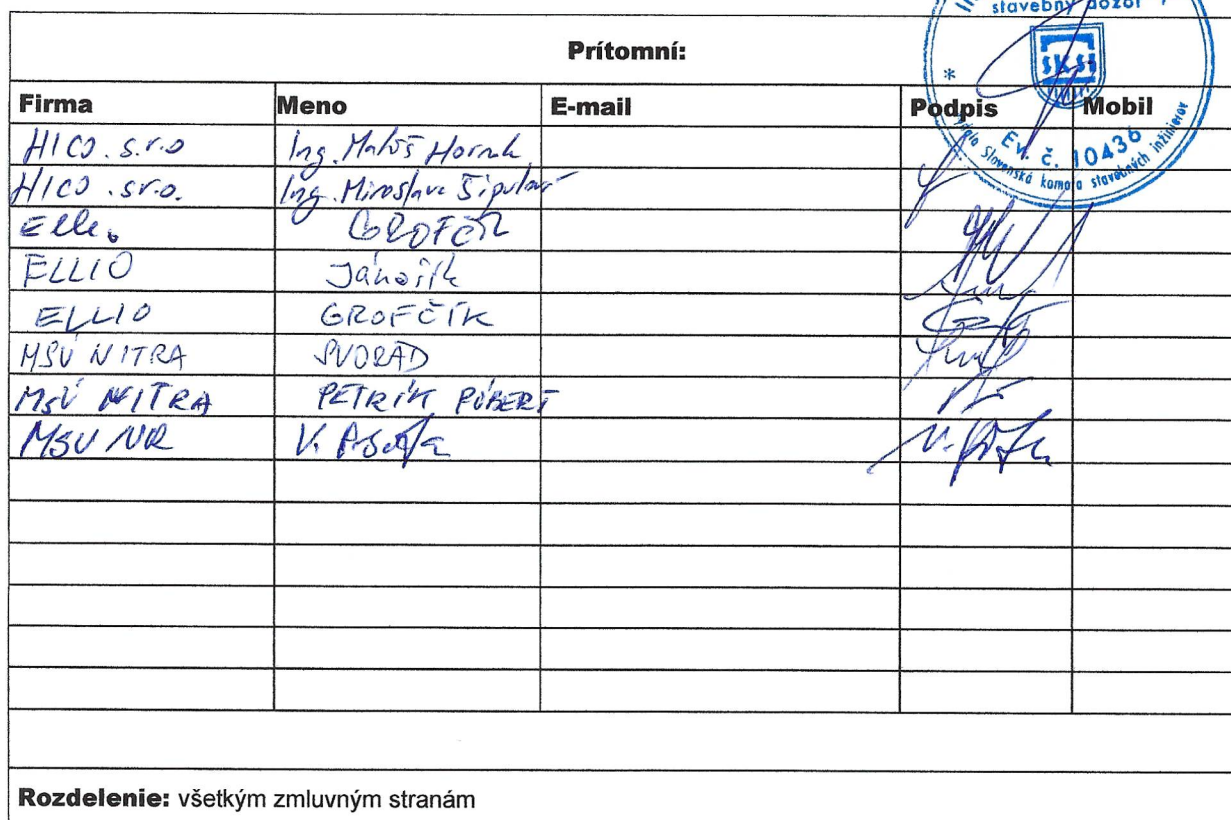 stavebný dozor
SKSI
Ev. č. 10436
Slovenská komora stavebných inžinierov
Prítomní:
Firma Meno E-mail Podpis Mobil
HICO. s.r.o Ing. Matúš Hornak
HICO. sro. Ing. Miroslava Šipulová
Elli. GROFČÍK
ELLIO Jánošík
ELLIO GROFČÍK
MSÚ NITRA SVORAD
MSÚ NITRA PETRÍK RÓBERT
MSU NR V.
Rozdelenie: všetkým zmluvným stranám